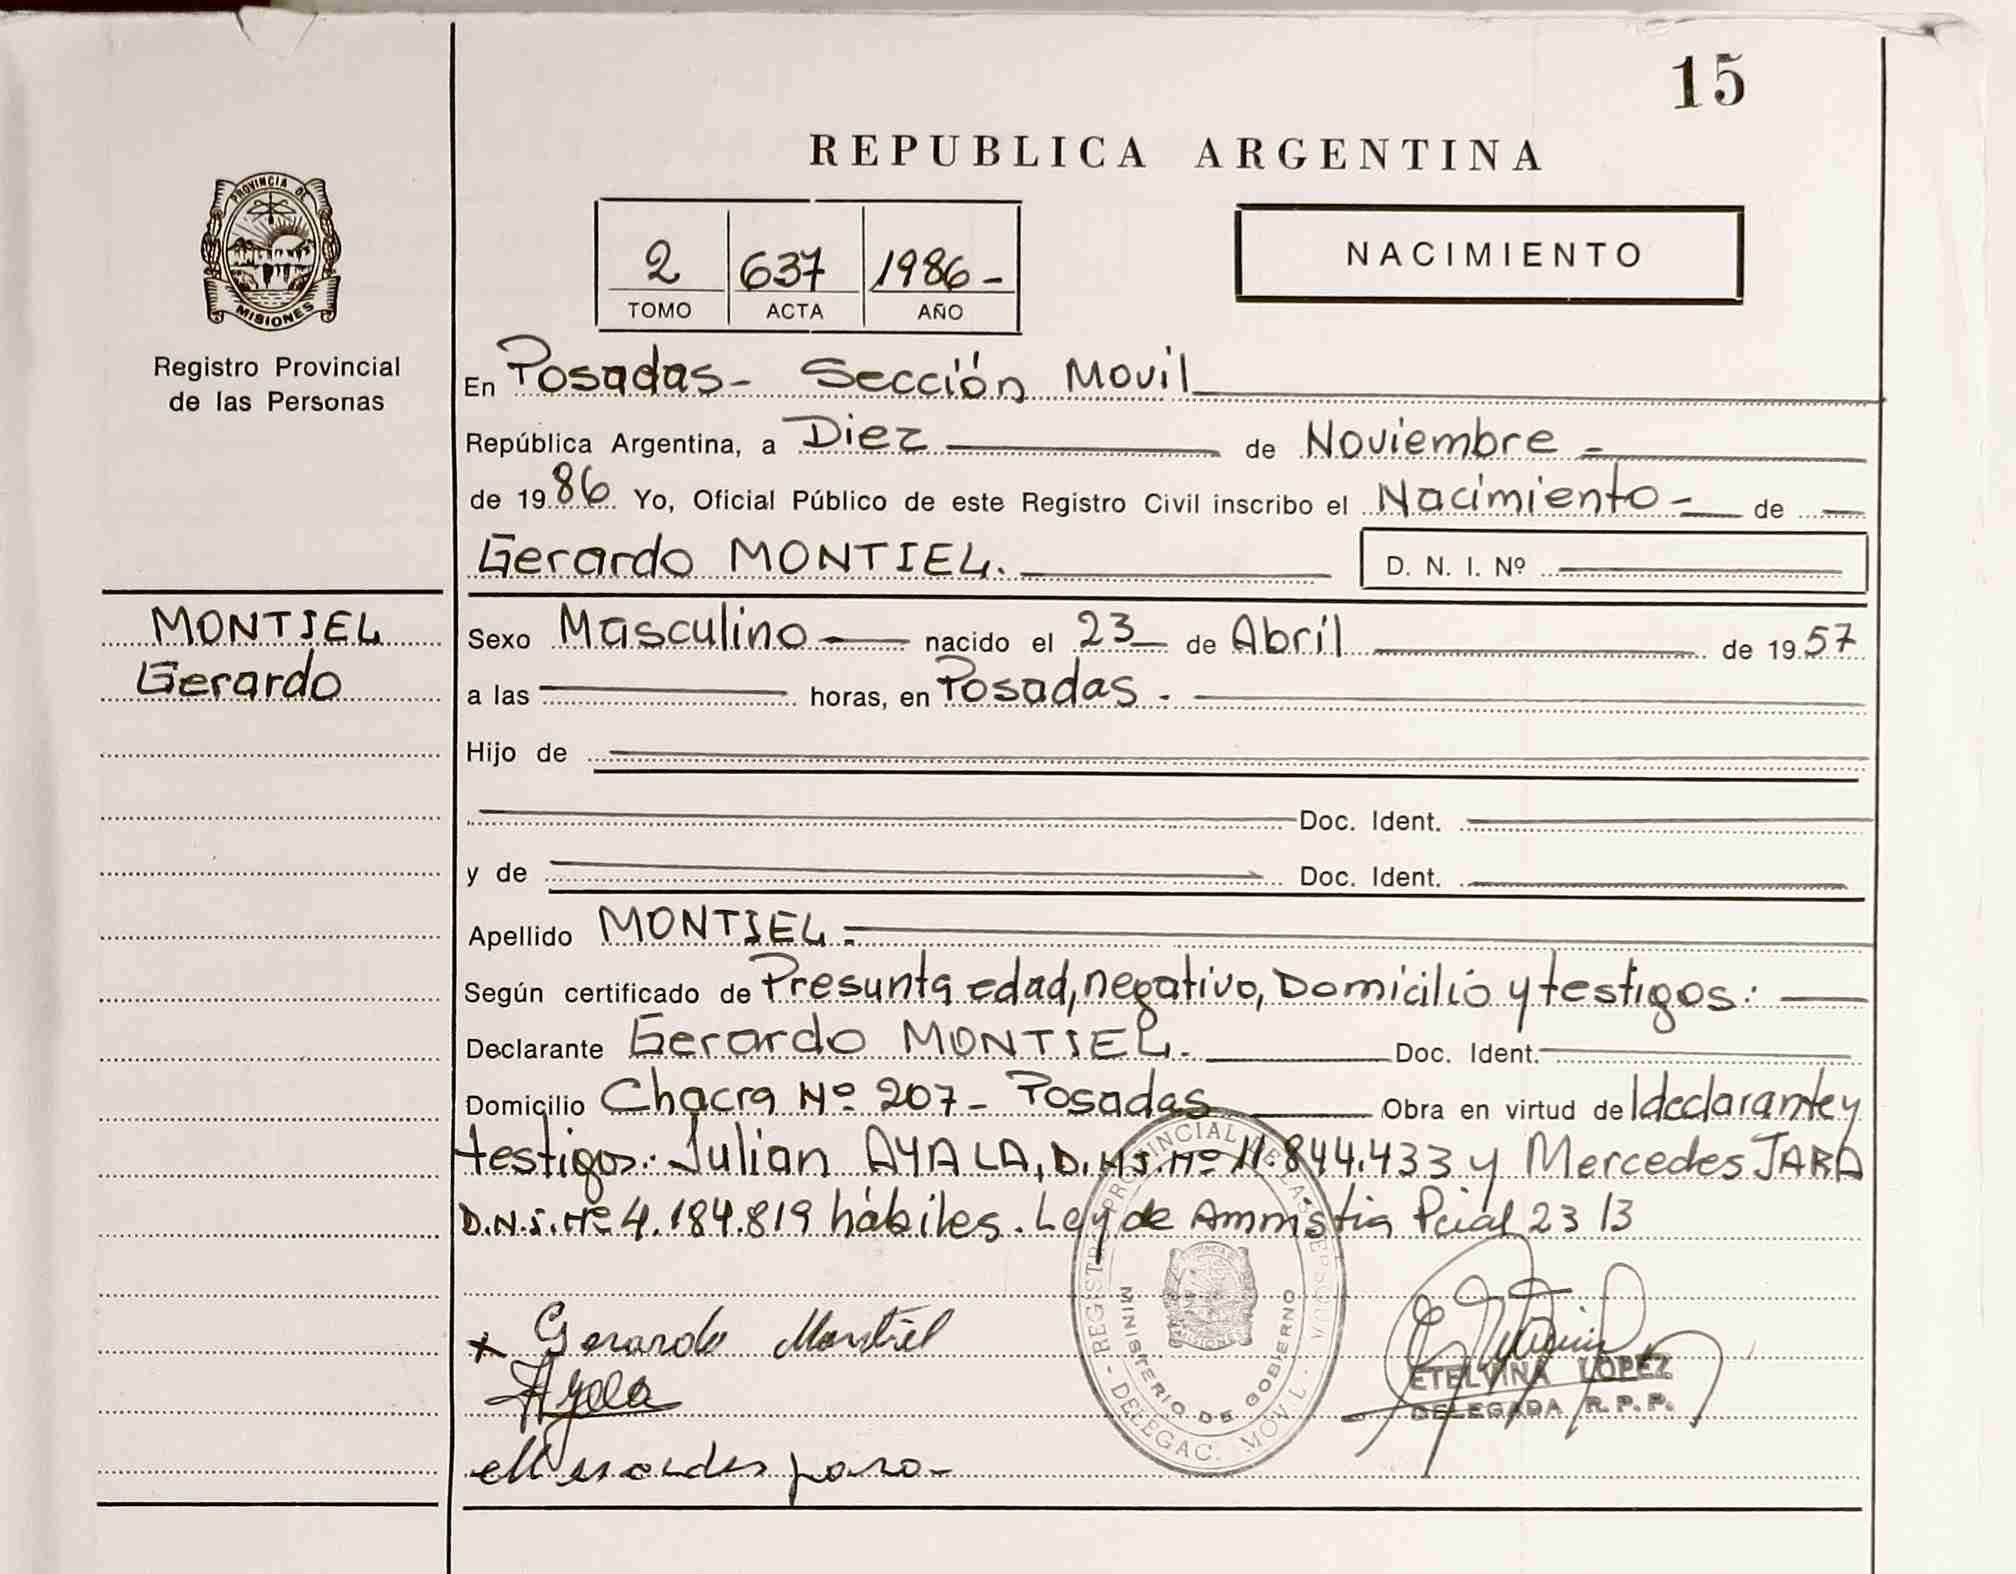 15
REPUBLICA ARGENTINA
PROVINCIA DE
MISIONES
Registro Provincial
de las Personas
2 637 1986-
TOMO ACTA AÑO
NACIMIENTO
En Posadas- Sección Movil
República Argentina, a Diez de Noviembre -
de 1986 Yo, Oficial Público de este Registro Civil inscribo el Nacimiento - de
Gerardo MONTIEL.
D. N. I. Nº
MONTIEL
Gerardo
Sexo Masculino nacido el 23 de Abril de 1957
a las horas, en Posadas.
Hijo de
Doc. Ident.
y de Doc. Ident.
Apellido MONTIEL
Según certificado de Presunta edad, negativo, Domicilio y testigos:
Declarante Gerardo MONTIEL. Doc. Ident.
Domicilio Chacra Nº 207- Posadas Obra en virtud de l declarante y
testigos: Julian AYALA, D.N.I. Nº 11.844.433 y Mercedes JARA
D.N.I. Nº 4.184.819 hábiles. Ley de Ammstia Pcial 2313
REGISTRO PROVINCIAL DE LAS PERSONAS
MINISTERIO DE GOBIERNO
- DELEGAC. MOVIL -
x Gerardo Montiel
Ayala
ETELVINA LOPEZ
DELEGADA R.P.P.